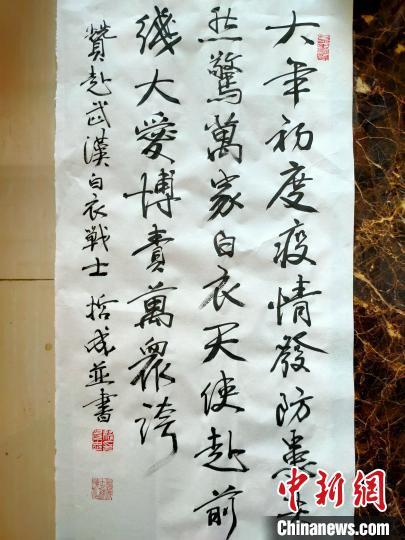 大年初度疫情發防患未
然驚萬家白衣天使赴前
綫大愛博萬眾誇
贊赴武漢白衣戰士 哲成並書
中新網
www.chinanews.com